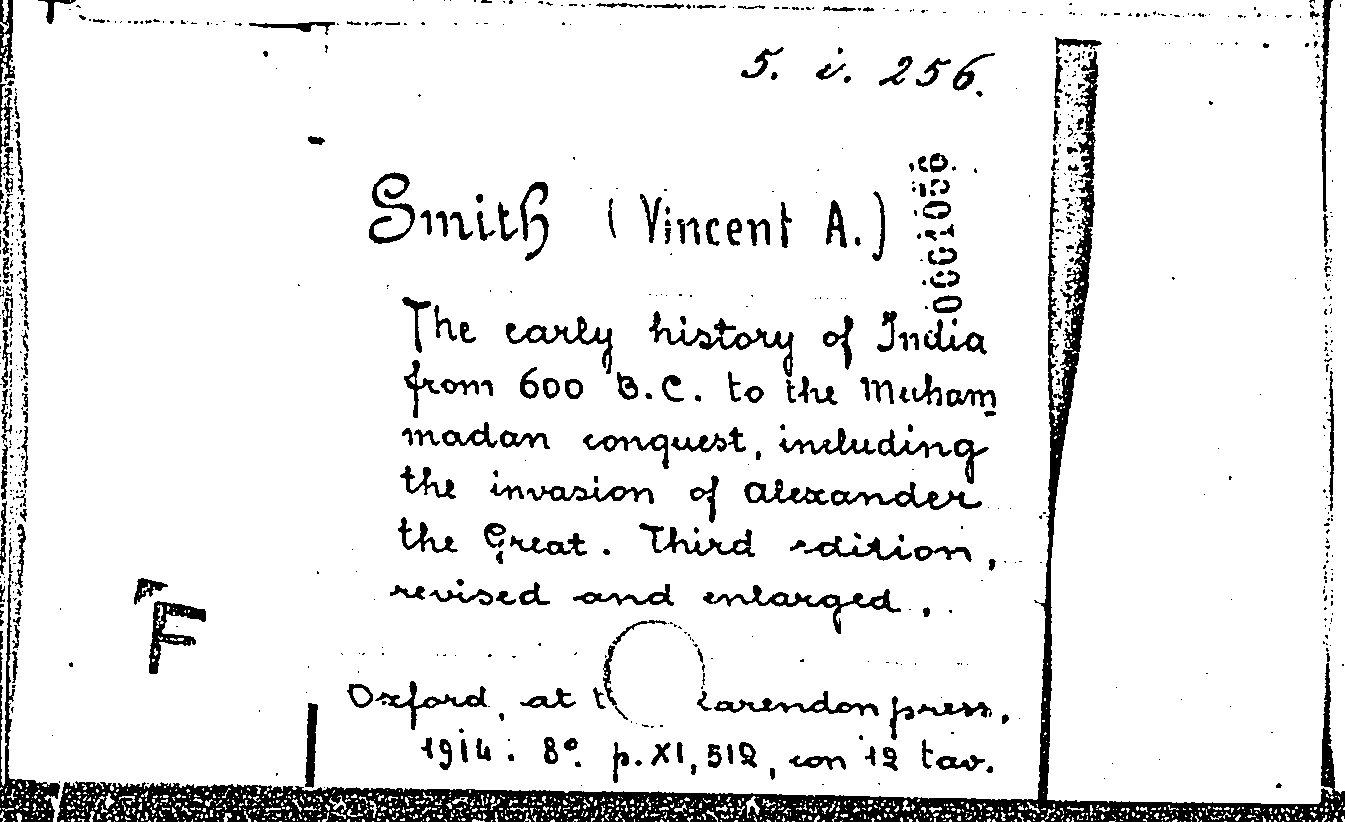 5. i. 256.
Smith (Vincent A.)
The early history of India
from 600 B.C. to the Muham
madan conquest, including
the invasion of Alexander
the Great. Third edition,
revised and enlarged.
Oxford, at t larendon press,
1914. 8° p. XI, 512, con 12 tav.
F